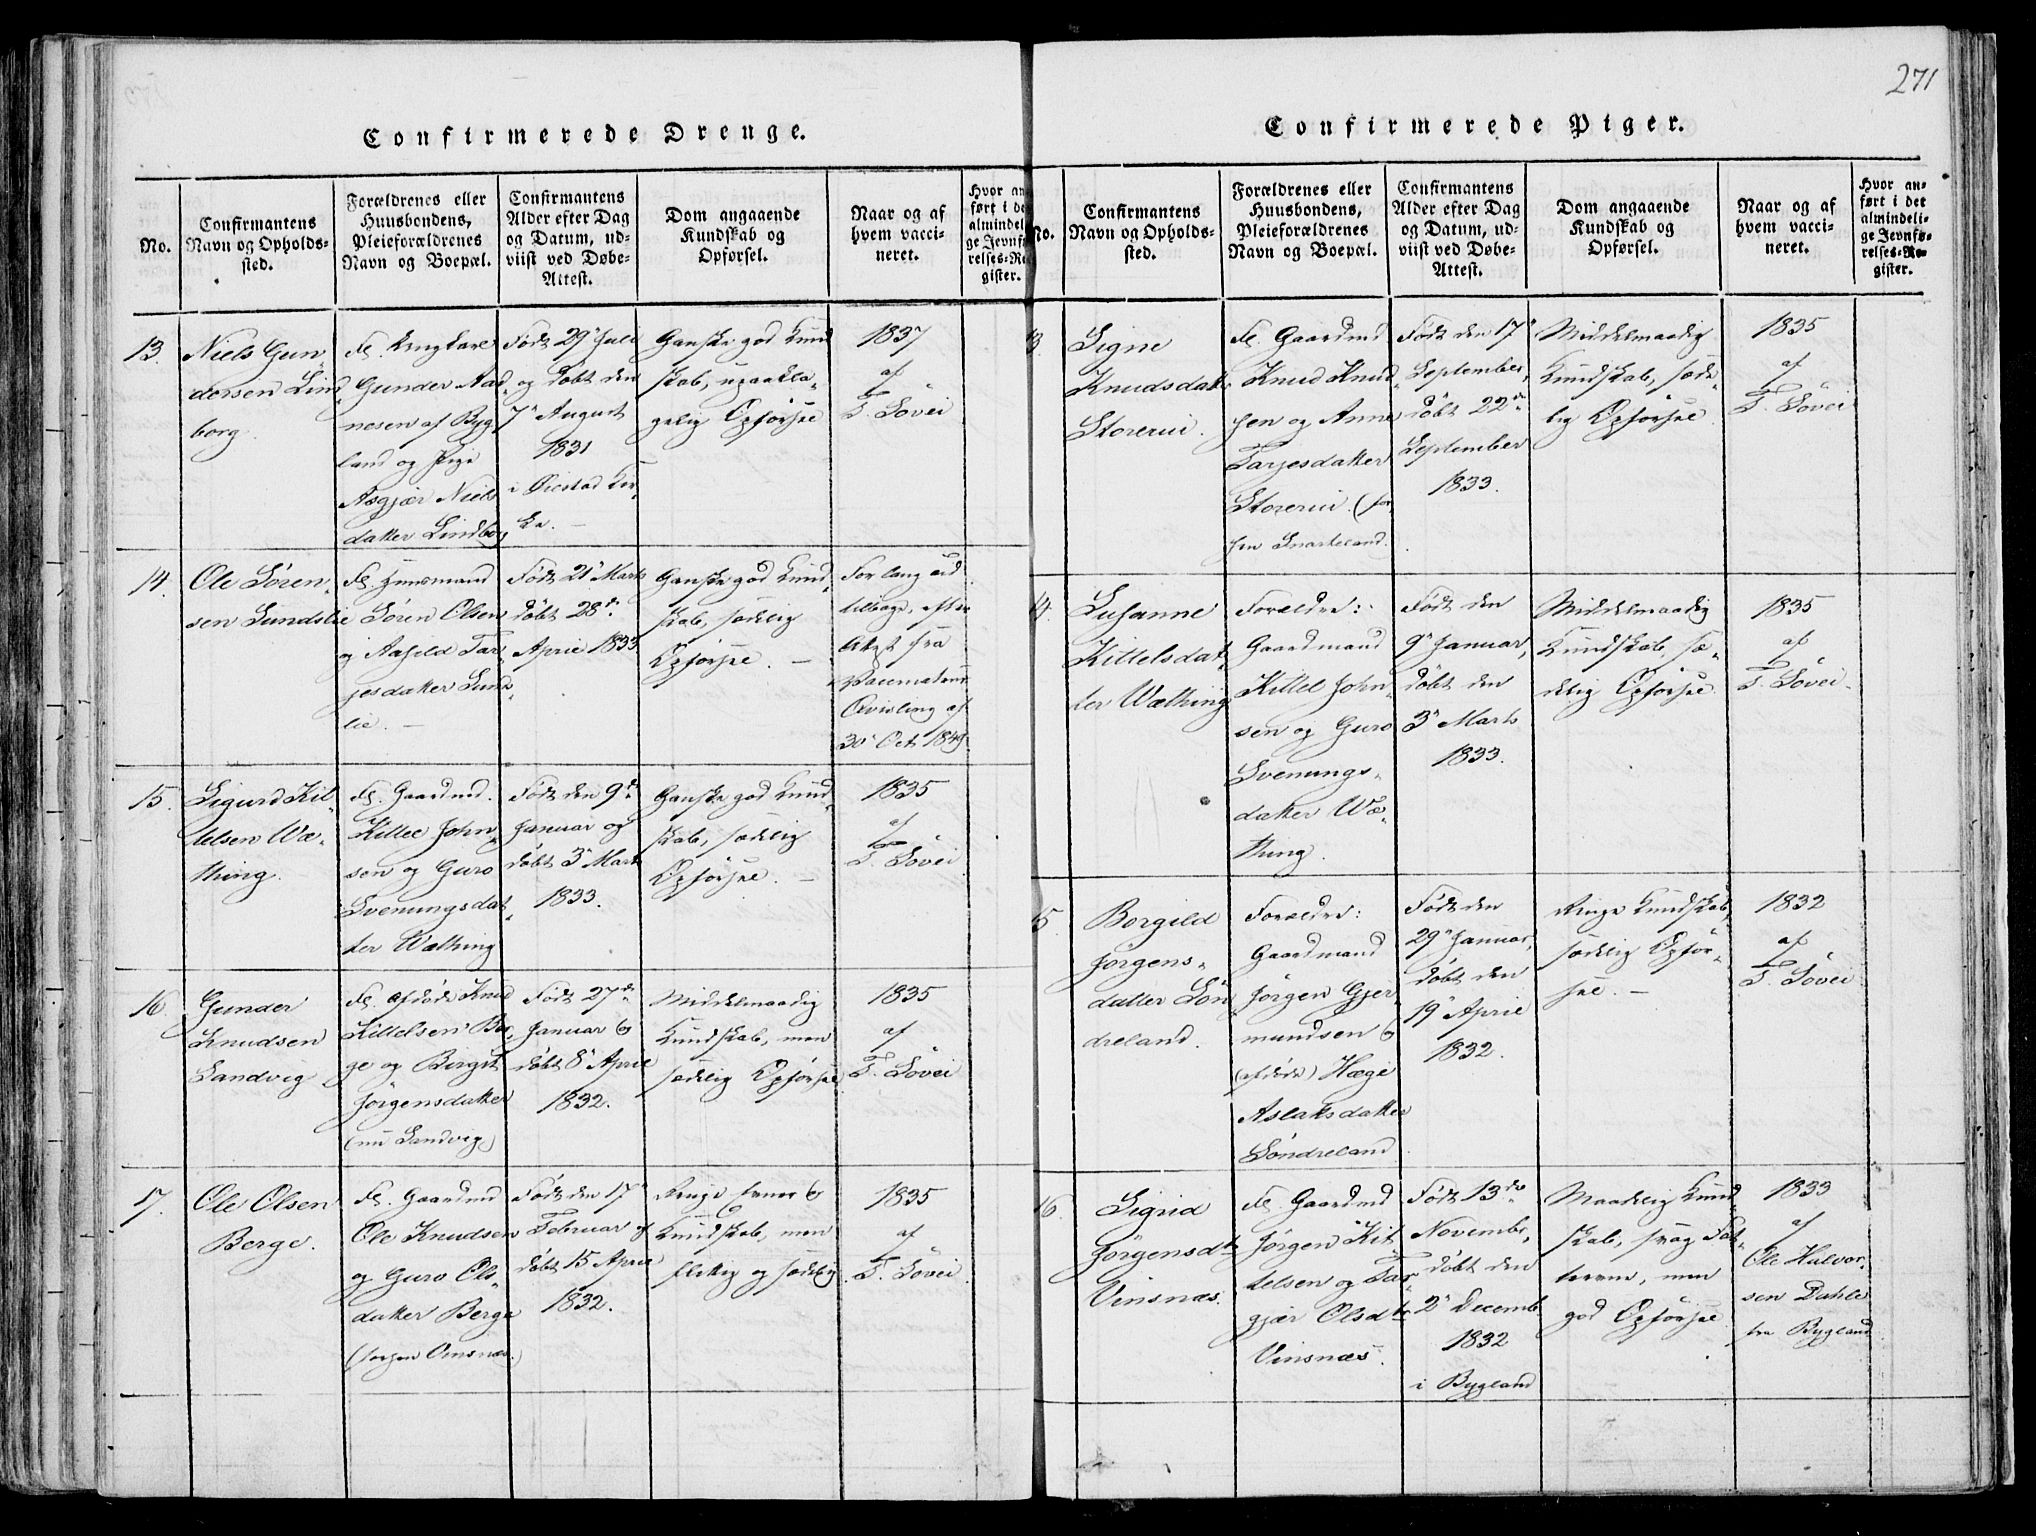 271
Confirmerede Drenge.
No.
Confirmantens
Navn og Opholds-
sted.
Forældrenes eller
Huusbondens,
Pleieforældrenes
Navn og Boepæl.
Confirmantens
Alder efter Dag
og Datum, ud-
viist ved Døbe-
Attest.
Dom angaaende
Kundskab og
Opførsel.
Naar og af
hvem vacci-
neret.
Hvor an
ført i de
almindel
ge Jevnf
relses-Re
gister.
13.
Niels Gun
dersen Lind
borg.
Gunder Aad
nesen af Byg
land og Pige
Asgjær Niels
datter Lindborg
Født 29 Juli
og døbt den
7 August
1831
i Øiestad Kir
ke. —
Ganske god Kund
skab, upaakla-
gelig Opførsel
1837
af
T. Løvei
14.
Ole Søren-
sen Sundslie
F. Huusmand
Søren Olsen
og Aasild Tar-
jesdatter Sunds
lie. —
Født 21 Marts
døbt 28de
April 1833
Ganske god Kund-
skab, sædelig
Opførsel. —
For lang tid
tilbage, efter
Attest fra
Vaccinateur
Qvisling af
30 Oct 1849
15.
Sigurd Kit-
telsen Wæ-
thing.
F. Gaardmd.
Kittel John-
sen og Guro
Svenungsdat-
ter Wæthing
Født den 9de
Januar og
døbt 3 Marts
1833.
Ganske god Kund-
skab, sædelig
Opførsel. —
1835
af
T. Løvei
16.
Gunder
Knudsen
Sandvig
F. afdøde Knud
Kittelsen Ber
ge og Birgit
Jörgensdatter
(nu Sandvig)
Født 27de
Januar &
døbt 8 April
1832.
Middelmaadig
Kundskab, men
sædelig Opførsel
1835
af
T. Løvei
17.
Ole Olsen
Berge.
F. Gaardmd
Ole Knudsen
og Guro Ols-
datter Berge
Født den 17
Februar og
døbt 15 April
1832.
Ringe &
Kundskab, men
flittig og sædelig
1835
af
T. Løvei
Confirmerede Piger.
No.
Confirmantens
Navn og Opholds-
sted.
Forældrenes eller
Huusbondens,
Pleieforældrenes
Navn og Boepæl.
Confirmantens
Alder efter Dag
og Datum, ud-
viist ved Døbe-
Attest.
Dom angaaende
Kundskab og
Opførsel.
Naar og af
hvem vacci-
neret.
Hvor an-
ført i det
almindeli-
ge Jevnfø-
relses-Re-
gister.
3.
Signe
Knudsdatt.
Storerui.
F. Gaardmd
Knud Knud
sen og Anne
Tarjesdatter
Storerui. (for
hen Snarteland.
Født den 17
September,
døbt 22de
September
1833.
Middelmaadig
Kundskab, sæde-
lig Opførsel.
1835
af
T. Løvei
4.
Susanne
Kittelsdat-
ter Wæthing
Forældre:
Gaardmand
Kittel John-
sen og Guro
Svenungs-
datter Wæ-
thing.
Født den
9 Januar,
døbt den
3 Marts
1833.
Middelmaadig
Kundskab, sæ-
delig Opførsel
1835
af
T. Løvei.
5.
Borgild
Jörgens-
datter Sön
dreland.
Forældre:
Gaardmand
Jörgen Gjer
mundsen &
(afdøde) Hæge
Aslaksdatter
Söndreland
Født den
29 Januar,
døbt den
19 April
1832.
Ringe Kundskab,
sædelig Opfør-
sel. —
1832
af
T. Løvei
16.
Sigrid
Jörgensdtr
Vinsnæs.
F. Gaardmd
Jörgen Kit
telsen og Tar
gjær Olsdtr
Vinsnæs.
Født 13de
Novembr,
døbt den
2 Decemb
1832
i Bygland
Maadelig Kund
skab, svag Fat-
teevne, men
god Opførsel.
1833
af
Ole Halvor-
sen Dahle
fra Bygland